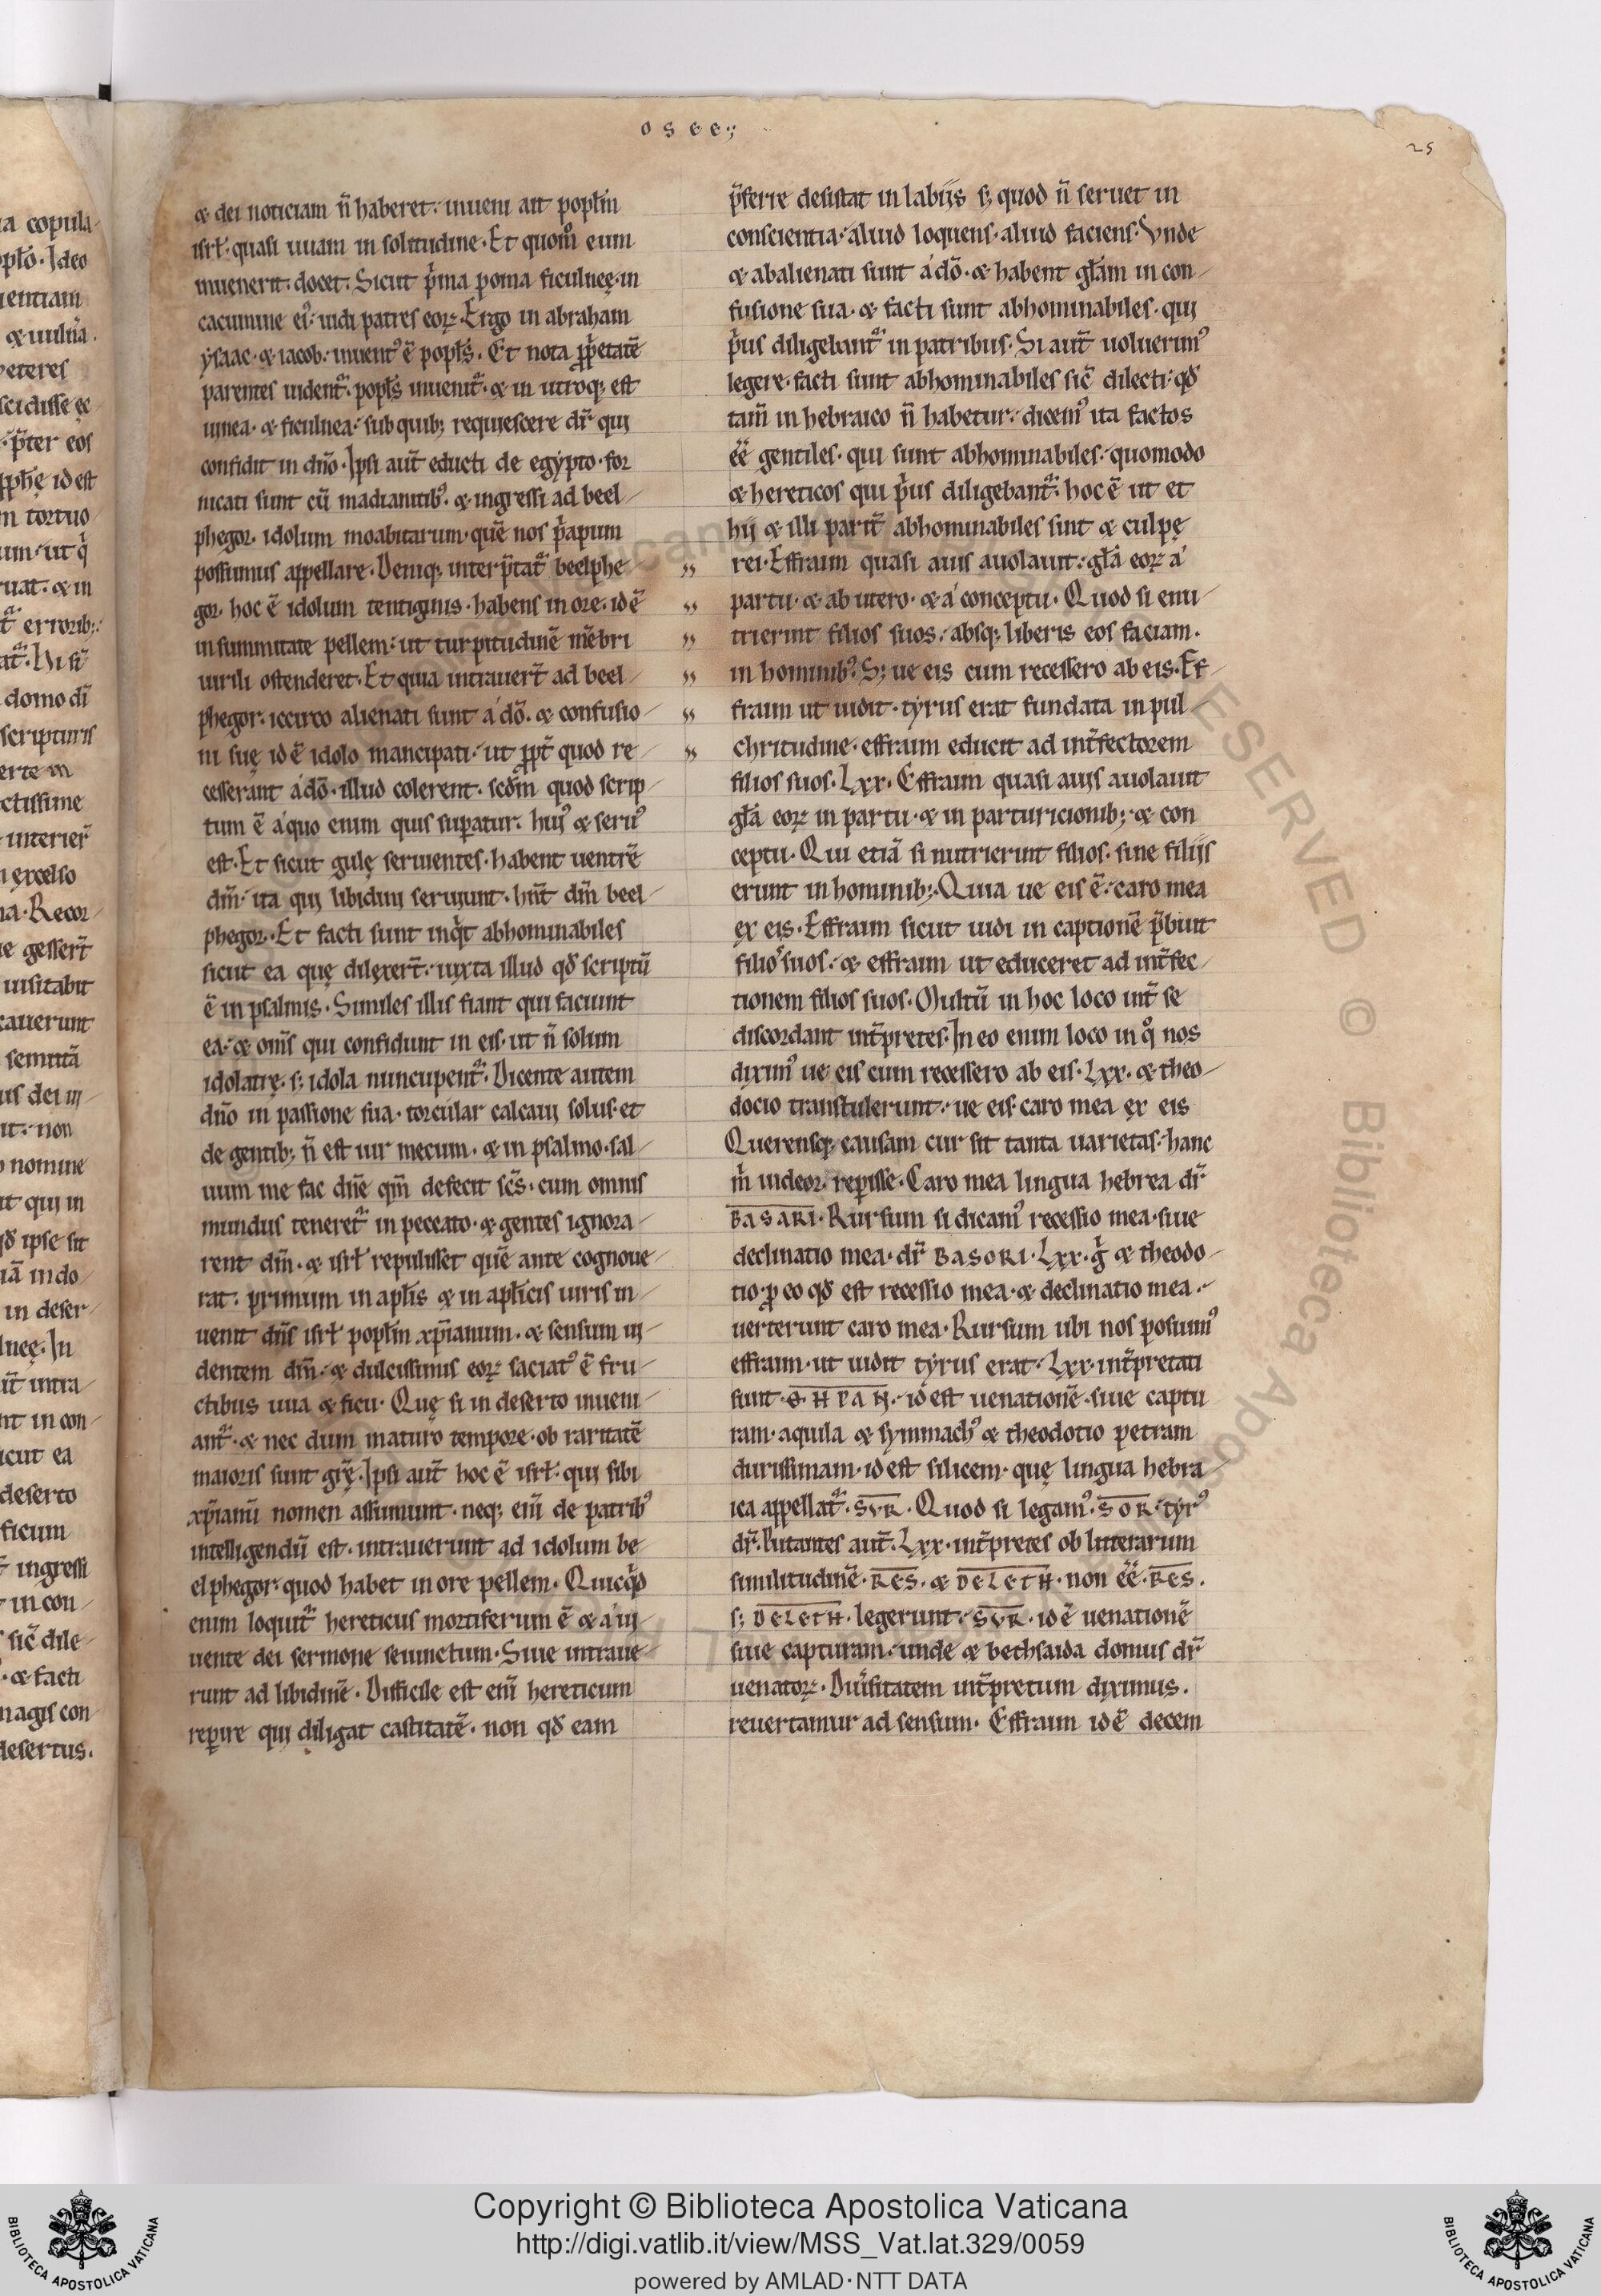 osee;
25
& dei noticiam n̄ haberet: inueni ait popl̄m
isrl̄ quasi uuam in solitudine. Et quom̊ eum
inuenerit. docet. Sicut p̄ma poma ficulneę in
cacumine ei᾿: uidi patres eoꝝ. Ergo in abraham
ẏsaac. & iacob: inuent᾿ ē popl̄s. Et nota ꝓp̄etatē
parentes uident᷑. popl̄s inuenit᷑. & in utroq; est
uinea. & ficulnea: sub quib; requiescere dr̄ qui
confidit in dn̄o. Ipsi aut̄ educti de egẏpto. for
nicati sunt cū madianitib᾿. & ingressi ad beel-
phegor. idolum moabitarum. quē nos p̄apum
possumus appellare. Deniq; interp̄tat᷑ beelphe
gor. hoc ē idolum tentiginis. habens in ore. id ē
in summitate pellem: ut turpitudinē mēbri
uirili ostenderet. Et quia intrauer̄t ad beel-
phegor. iccirco alienati sunt a dō. & confusio-
ni suę id ē idolo mancipati. ut ꝓpt̄ quod re-
cesserant a dō. illud colerent. scd̄m quod scrip-
tum ē a quo enim quis suꝑatur. hui᾿ & seru᾿
est. Et sicut gulę seruientes. habent uentrē
dm̄. ita qui libidini seruiunt. hn̄t dm̄ beel-
phegor. Et facti sunt inq̄t abhominabiles
sicut ea quę dilexer̄t: iuxta illud qd̄ scriptū
ē in psalmis. Similes illis fiant qui faciunt
ea. & om̄s qui confidunt in eis. ut n̄ solum
idolatrę. s; idola nuncupent᷑. Dicente autem
dn̄o in passione sua. torcular calcaui solus. et
de gentib; n̄ est uir mecum. & in psalmo. sal-
uum me fac dn̄e qm̄ defecit sc̄s. cum omnis
mundus teneret᷑ in peccato. & gentes ignora-
rent dm̄. & isrl̄ repulisset quē ante cognoue-
rat. primum in apl̄is & in apl̄icis uiris in-
uenit dn̄s isrl̄ popl̄m xp̄ianum. & sensum ui-
dentem dm̄. & dulcissimis eoꝝ saciat᾿ ē fru-
ctibus uua & ficu. Quę si in deserto inueni-
ant᷑. & nec dum maturo tempore. ob raritatē
maioris sunt gr̄ę. Ipsi aut̄ hoc ē isrl̄. qui sibi
xp̄ianū nomen assumunt. neq; eni̅ de patrib᾿
intelligendū est. intrauerunt ad idolum be-
el phegor. quod habet in ore pellem. Quicq̄d
enim loquit᷑ hereticus mortiferum ē & a ui-
uente dei sermone seiunctum. Siue intraue-
runt ad libidinē. Difficile est eni̅ hereticum
reꝑire qui diligat castitatē. non qd̄ eam
p̄ferre desistat in labijs s; quod n̄ seruet in
conscientia. aliud loquens. aliud faciens. Vnde
& abalienati sunt a dō. & habent gl̄am in con-
fusione sua. & facti sunt abhominabiles. qui
p̄us diligebant᷑ in patribus. Si aut̄ uoluerim᾿
legere. facti sunt abhominabiles sic̄ dilecti. qd̄
tam̄ in hebraico n̄ habetur: dicem᾿ ita factos
eē gentiles. qui sunt abhominabiles. quomodo
& hereticos qui p̄us diligebant᷑. hoc ē ut et
hij & illi parit̄ abhominabiles sint & culpę
rei. Effraim quasi auis auolauit. gl̄a eoꝝ a
partu. & ab utero. & a conceptu. Quod si enu-
trierint filios suos: absq; liberis eos faciam.
in hominib᾿. S; ue eis cum recessero ab eis. Ef-
fraim ut uidit. tẏrus erat fundata in pul-
chritudine. effraim educit ad int̄fectorem
filios suos. Lxx. Effraim quasi auis auolauit
gl̄a eoꝝ in partu. & in parturicionib; & con
ceptu. Qui etiā si nutrierint filios. sine filijs
erunt in hominib;. Quia ue eis ē: caro mea
ex eis. Effraim sicut uidi in captionē p̄buit
filios suos: & effraim ut educeret ad int̄fec-
tionem filios suos. Multū in hoc loco int̄ se
discordant int̄pretes. In eo enim loco in q̊ nos
dixim᾿ ue eis cum recessero ab eis. Lxx. & theo-
docio transtulerunt: ue eis caro mea ex eis
Querensq; causam cur sit tanta uarietas. hanc
m̄ uideor reꝑisse. Caro mea lingua hebrea dr̄
BASARI. Rursum si dicam᾿ recessio mea. siue
declinatio mea. dr̄ BASORI. Lxx. g̊ & theodo-
tio. ꝓ eo qd̄ est recessio mea. & declinatio mea.
uerterunt caro mea. Rursum ubi nos posuim᾿
effraim. ut uidit tẏrus erat. Lxx. int̄pretati
sunt. ΘΗΡΑΝ. id est uenationē. siue captu
ram. aquila & sẏmmach᾿ & theodotio petram
durissimam. id est silicem. quę lingua hebra-
ica appellat᷑. SVR. Quod si legam᾿. SOR. tẏr᾿
dr̄. Putantes aut̄. Lxx. int̄pretes ob litterarum
similitudinē. RES. & DELETH. non eē. RES.
s; DELETH. legerunt. SVR. id ē uenationē
siue capturam. unde & bethsaida domus dr̄
uenatoꝝ. Diu̅sitatem int̄pretum diximus.
reuertamur ad sensum. Effraim id ē decem
Copyright © Biblioteca Apostolica Vaticana
http://digi.vatlib.it/view/MSS_Vat.lat.329/0059
powered by AMLAD·NTT DATA
BIBLIOTECA APOSTOLICA VATICANA
BIBLIOTECA APOSTOLICA VATICANA